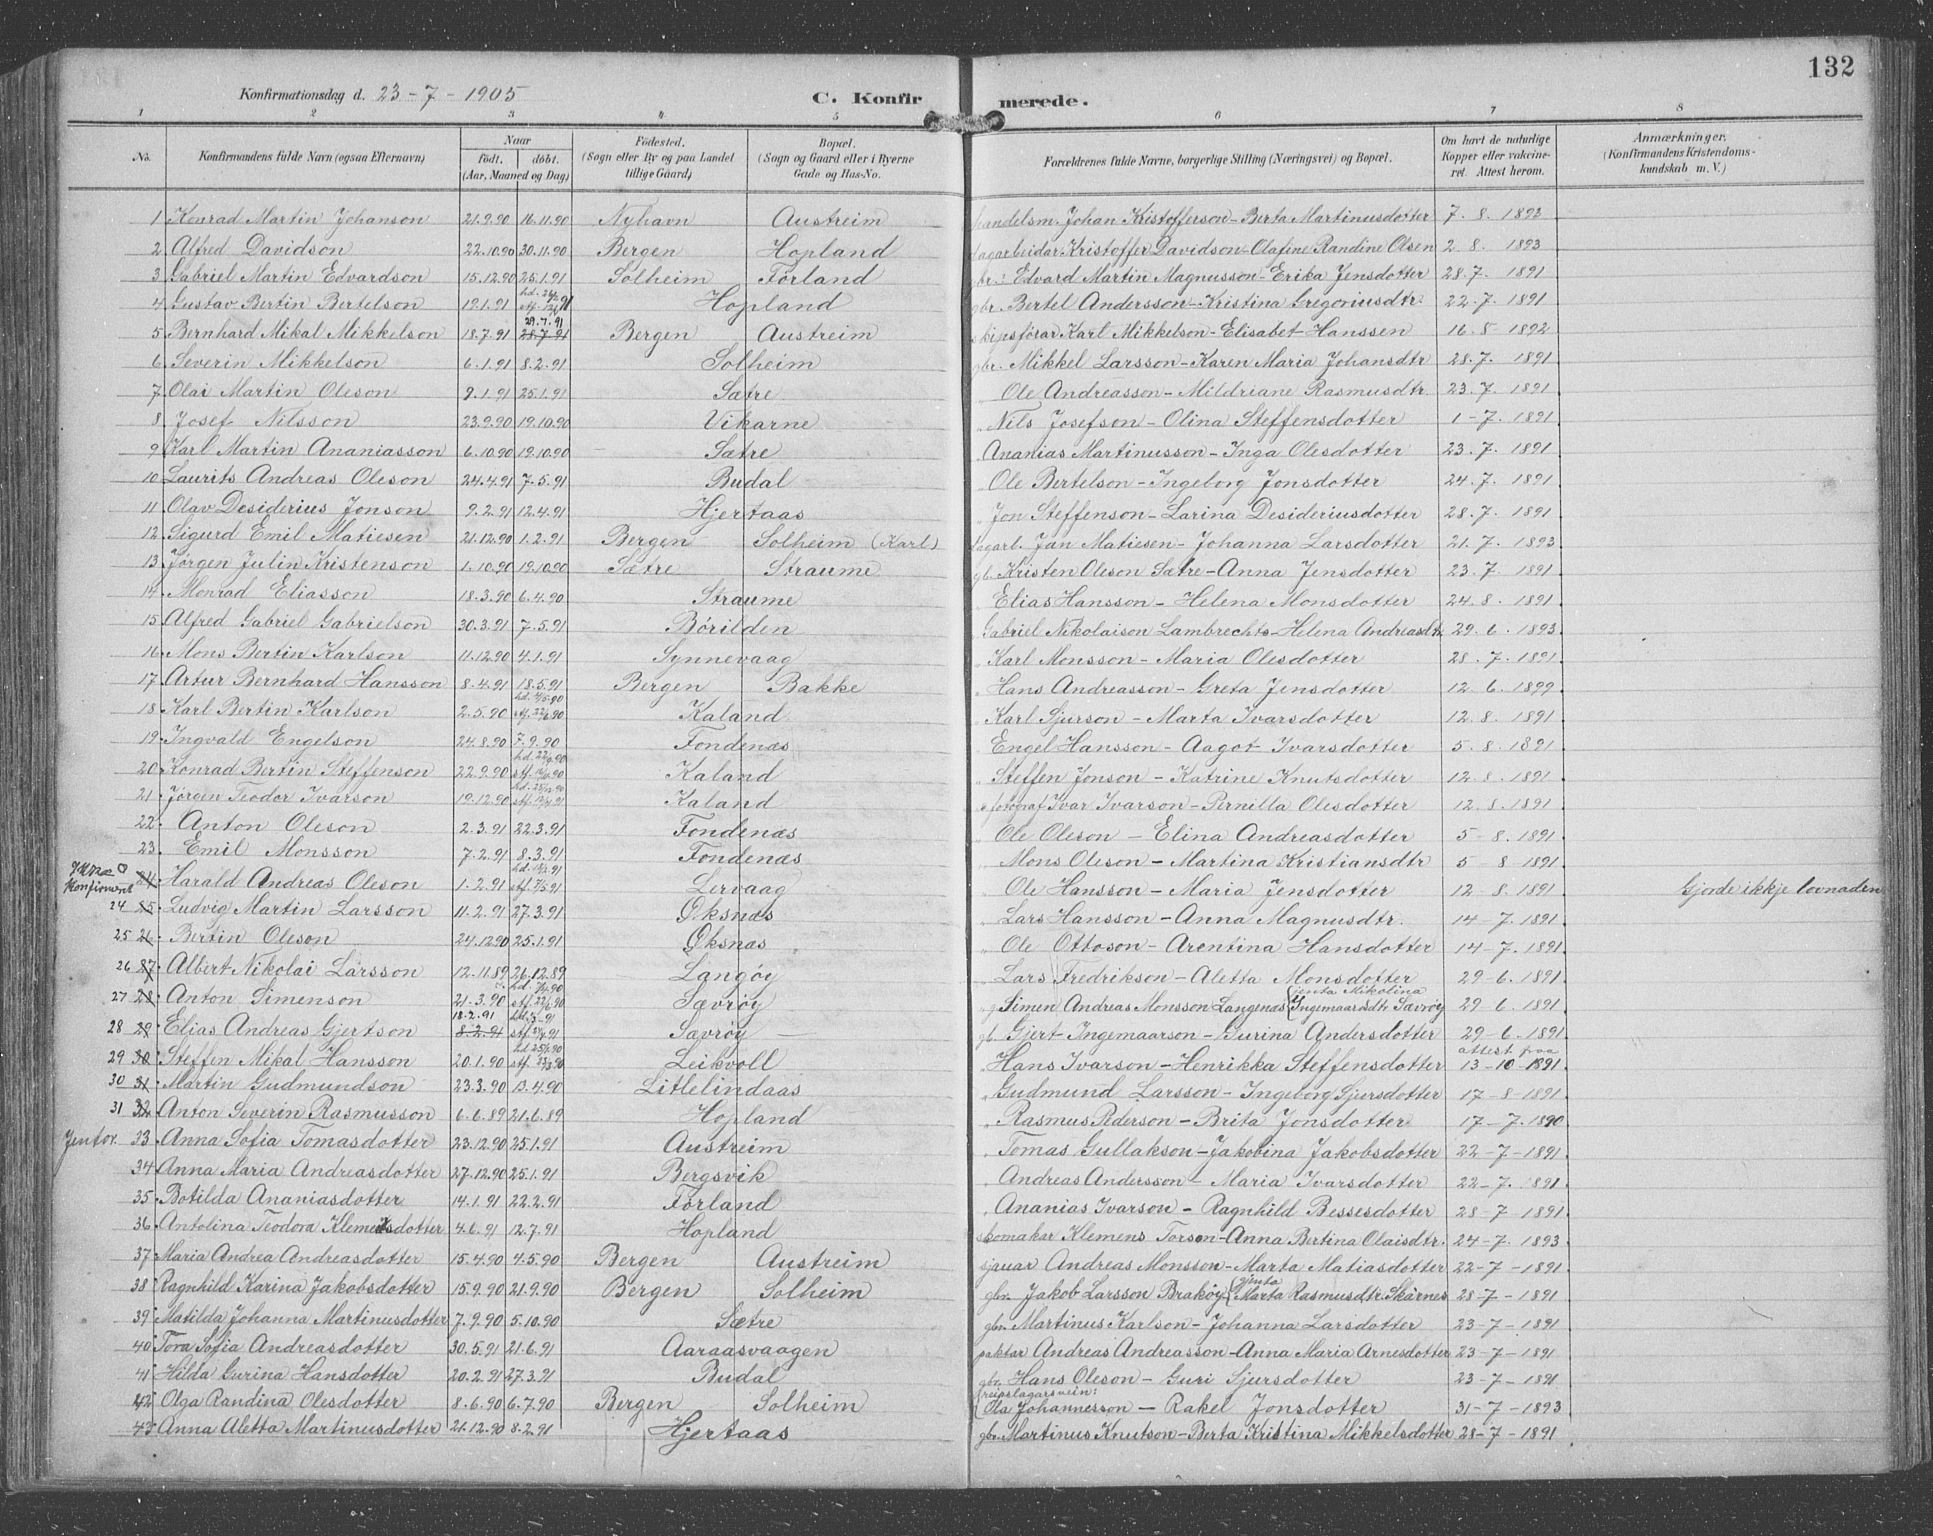 132
Konfirmationsdag d. 23-7-1905
C. Konfirmerede.
1 2 3 4 5 6 7 8
No. | Konfirmandens fulde Navn (ogsaa Efternavn) | Naar født. døbt. (Aar, Maaned og Dag) | Fødested. (Sogn eller By og paa Landet tillige Gaard) | Bopæl. (Sogn og Gaard eller i Byerne Gade og Hus-No. | Forældrenes fulde Navne, borgerlige Stilling (Næringsvei) og Bopæl. | Om havt de naturlige Kopper eller vakcineret. Attest herom. | Anmærkninger. (Konfirmandens Kristendomskundskab m. V.)
1 Konrad Martin Johanson 21.9.90 16.11.90 Nyhavn Austreim handelsm. Johan Kristofferson - Berta Martinusdotter 7. 8. 1892
2 Alfred Davidson 22.10.90 30.11.90 Bergen Hopland dagarbeidar Kristoffer Davidson - Olafine Randine Olsen 2. 8. 1893
3 Gabriel Martin Edvardson 15.12.90 25.1.91 Solheim Førland br.: Edvard Martin Magnusson - Erika Jensdotter 28.7. 1891
4 Gustav Bertin Bertelson 19.1.91 Hopland gbr. Bertel Andersson - Kristina Gregoriusdtr. 22.7. 1891
5 Bernhard Mikal Mikkelson 18.7.91 29.7.91 28.7.91 Bergen Austreim skipsførar Karl Mikkelson - Elisabet Hanssen 16.8 1892
6 Severin Mikkelson 6.1.91 8.2.91 Solheim gbr. Mikkel Larsson - Karen Maria Johansdtr 28.7. 1891
7 Olai Martin Oleson 9.1.91 25.1.91 Sætre " Ole Andreasson - Mildriane Rasmusdtr. 23.7. 1891
8 Josef Nilsson 23.9.90 19.10.90 Vikarne " Nils Josefson - Olina Steffensdotter 1-7. 1891
9 Karl Martin Ananiasson 6.10.90 19.10.90 Sætre " Ananias Martinusson - Inga Olesdotter 23.7. 1891
10 Laurits Andreas Oleson 24.4.91 7.5.91 Budal " Ole Bertelson - Ingeborg Jonsdotter 24.7. 1891
11 Olav Desiderius Jonson 9.2.91 12.4.91 Hjertaas " Jon Steffenson - Larina Desideriusdotter 28.7. 1891
12 Sigurd Emil Matiesen 21.12.90 1.2.91 Bergen Solheim (Karl) dagarb. Jan Matiesen - Johanna Larsdotter 21.7. 1893
13 Jørgen Julin Kristenson 1.10.90 19.10.90 Sætre Straume gb. Kristen Oleson Sætre - Anna Jensdotter 23.7. 1891
14 Monrad Eliasson 18.3.90 6.4.90 Straume " Elias Hansson - Helena Monsdotter 24.8. 1891
15 Alfred Gabriel Gabrielson 30.3.91 7.5.91 Børilden " Gabriel Nikolaison Lambrechts - Helena Andreasdtr. 29.6. 1893
16 Mons Bertin Karlson 11.12.90 4.1.91 Synnevaag " Karl Monsson - Maria Olesdotter 28.7. 1891
17 Artur Bernhard Hansson 8.4.91 18.5.91 Bergen Bakke " Hans Andreasson - Greta Jensdotter 12.6. 1899
18 Karl Bertin Karlson 2.5.90 Kaland " Karl Sjurson - Marta Ivarsdotter 12.8. 1891
19 Ingvald Engelson 24.8.90 7.9.90 Fondenæs " Engel Hansson - Aagot Ivarsdotter 5.8. 1891
20 Konrad Bertin Steffenson 22.9.90 Kaland " Steffen Jonson - Katrine Knutsdotter 12.8. 1891
21 Jørgen Teodor Ivarson 19.12.90 Kaland fotograf Ivar Ivarson - Pernilla Olesdotter 12.8. 1891
22 Anton Oleson 2.3.91 22.3.91 Fondenæs " Ole Oleson - Elina Andreasdotter 5-8. 1891
23 Emil Monsson 7.2.91 8.3.91 Fondenæs " Mons Oleson - Martina Kristiansdtr 5-8. 1891
Konfirmert 24 Harald Andreas Oleson 1.2.91 Lervaag " Ole Hansson - Maria Jensdotter 12-8. 1891 Gjorde ikkje lovnaden
24 25 Ludvig Martin Larsson 11.2.91 27.3.91 Øksnæs " Lars Hansson - Anna Magnusdtr. 14-7. 1891
25 26 Bertin Oleson 24.12.90 25.1.91 Øksnæs " Ole Ottoson - Arentina Hansdotter 14-7. 1891
26 27 Albert Nikolai Larsson 12.11.89 26.12.89 Langøy " Lars Fredrikson - Aletta Monsdotter 29-6. 1891
27 28 Anton Simenson 21.3.90 Sævrøy " Simen Andreas Monsson Langenæs jenta Mikolina Ingemaarsdtr. Sævrøy 29-6. 1891
28 29 Elias Andreas Gjertson 18.2.91 8.2.91 Sævrøy gb. Gjert Ingemaarson - Gurina Andersdotter 29-6. 1891
29 30 Steffen Mikal Hansson 20.1.90 Leikvoll " Hans Ivarson - Henrikka Steffensdotter attest fraa 13-10-1891
30 31 Martin Gudmundson 23.3.90 13.4.90 Litlelindaas " Gudmund Larsson - Ingeborg Sjursdotter 17-8-1891
31 32 Anton Severin Rasmusson 6.6.89 21.6.89 Hopland " Rasmus Pederson - Brita Jonsdotter 17-7. 1890
Jentor. 33 Anna Sofia Tomasdotter 23.12.90 25.1.91 Austreim " Tomas Gullakson - Jakobina Jakobsdotter 22-7-1891
34 Anna Maria Andreasdotter 27.12.90 25.1.91 Bergsvik " Andreas Andersson - Maria Ivarsdotter 22-7. 1891
35 Botilda Ananiasdotter 14.1.91 22.2.91 Førland " Ananias Ivarson - Ragnhild Bessesdotter 28-7 1891
36 Antolina Teodora Klemetsdotter 4.6.91 12.7.91 Hopland skomakar Klemens Torson - Anna Bertina Olaisdtr. 24-7. 1893
37 Maria Andrea Andreasdotter 15.4.90 4.5.90 Bergen Austreim sjauar Andreas Monsson - Marta Matiasdotter 22-7-1891
38 Ragnhild Karina Jakobsdotter 15.9.90 21.9.90 Bergen Solheim gbr. Jakob Larsson Brakøy jenta Marta Rasmusdtr. Skárnes 28-7-1891
39 Matilda Johanna Martinusdotter 7.9.90 5.10.90 Sætre gbr. Martinus Karlson - Johanna Larsdotter 23-7-1891
40 Tora Sofia Andreasdotter 30.5.91 21.6.91 Aaraasvaagen paktar Andreas Andreasson - Anna Maria Arnesdotter 23-7-1891
41 Hilda Gurina Hansdotter 20.2.91 27.3.91 Budal gbr. Hans Oleson - Guri Sjursdotter 23-7-1891
42 Olga Randina Olesdotter 8.6.90 6.7.90 Bergen Solheim reipslagarsvein: Ola Johannesson - Rakel Jonsdotter 31-7-1893
43 Anna Aletta Martinusdotter 21.12.90 8.2.91 Hjertaas gbr. Martinus Knutson - Berta Kristina Mikkelsdotter 28-7-1891